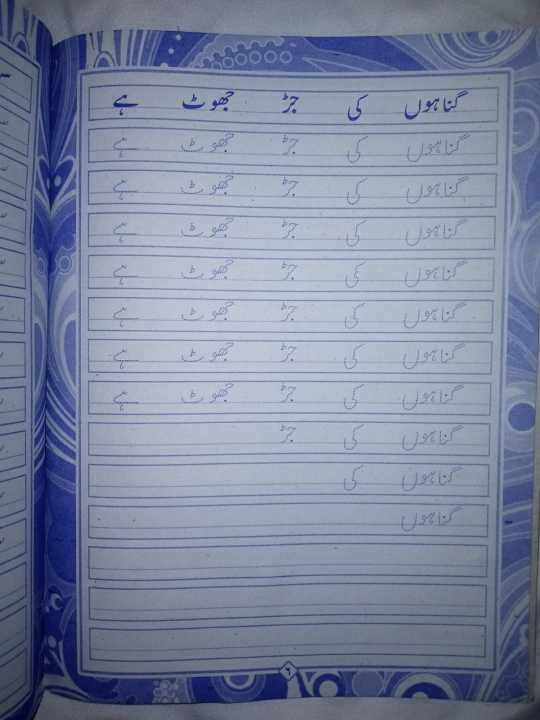 گناہوں کی جڑ جھوٹ ہے
گناہوں کی جڑ جھوٹ ہے
گناہوں کی جڑ جھوٹ ہے
گناہوں کی جڑ جھوٹ ہے
گناہوں کی جڑ جھوٹ ہے
گناہوں کی جڑ جھوٹ ہے
گناہوں کی جڑ جھوٹ ہے
گناہوں کی جڑ جھوٹ ہے
گناہوں کی جڑ
گناہوں کی
گناہوں
٦